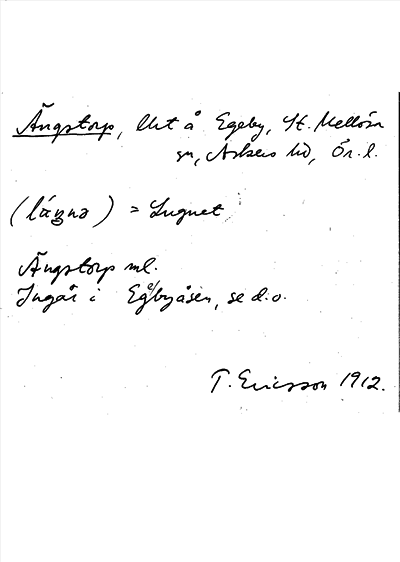 Ängstorp, lht å Egeby, St. Mellösa
sn, Askers hd, Ör. l.
(lúgnə) = Lugnet
Ängstorp ml.
Ingår i Egebyåsen, se d.o.
T. Ericsson 1912.